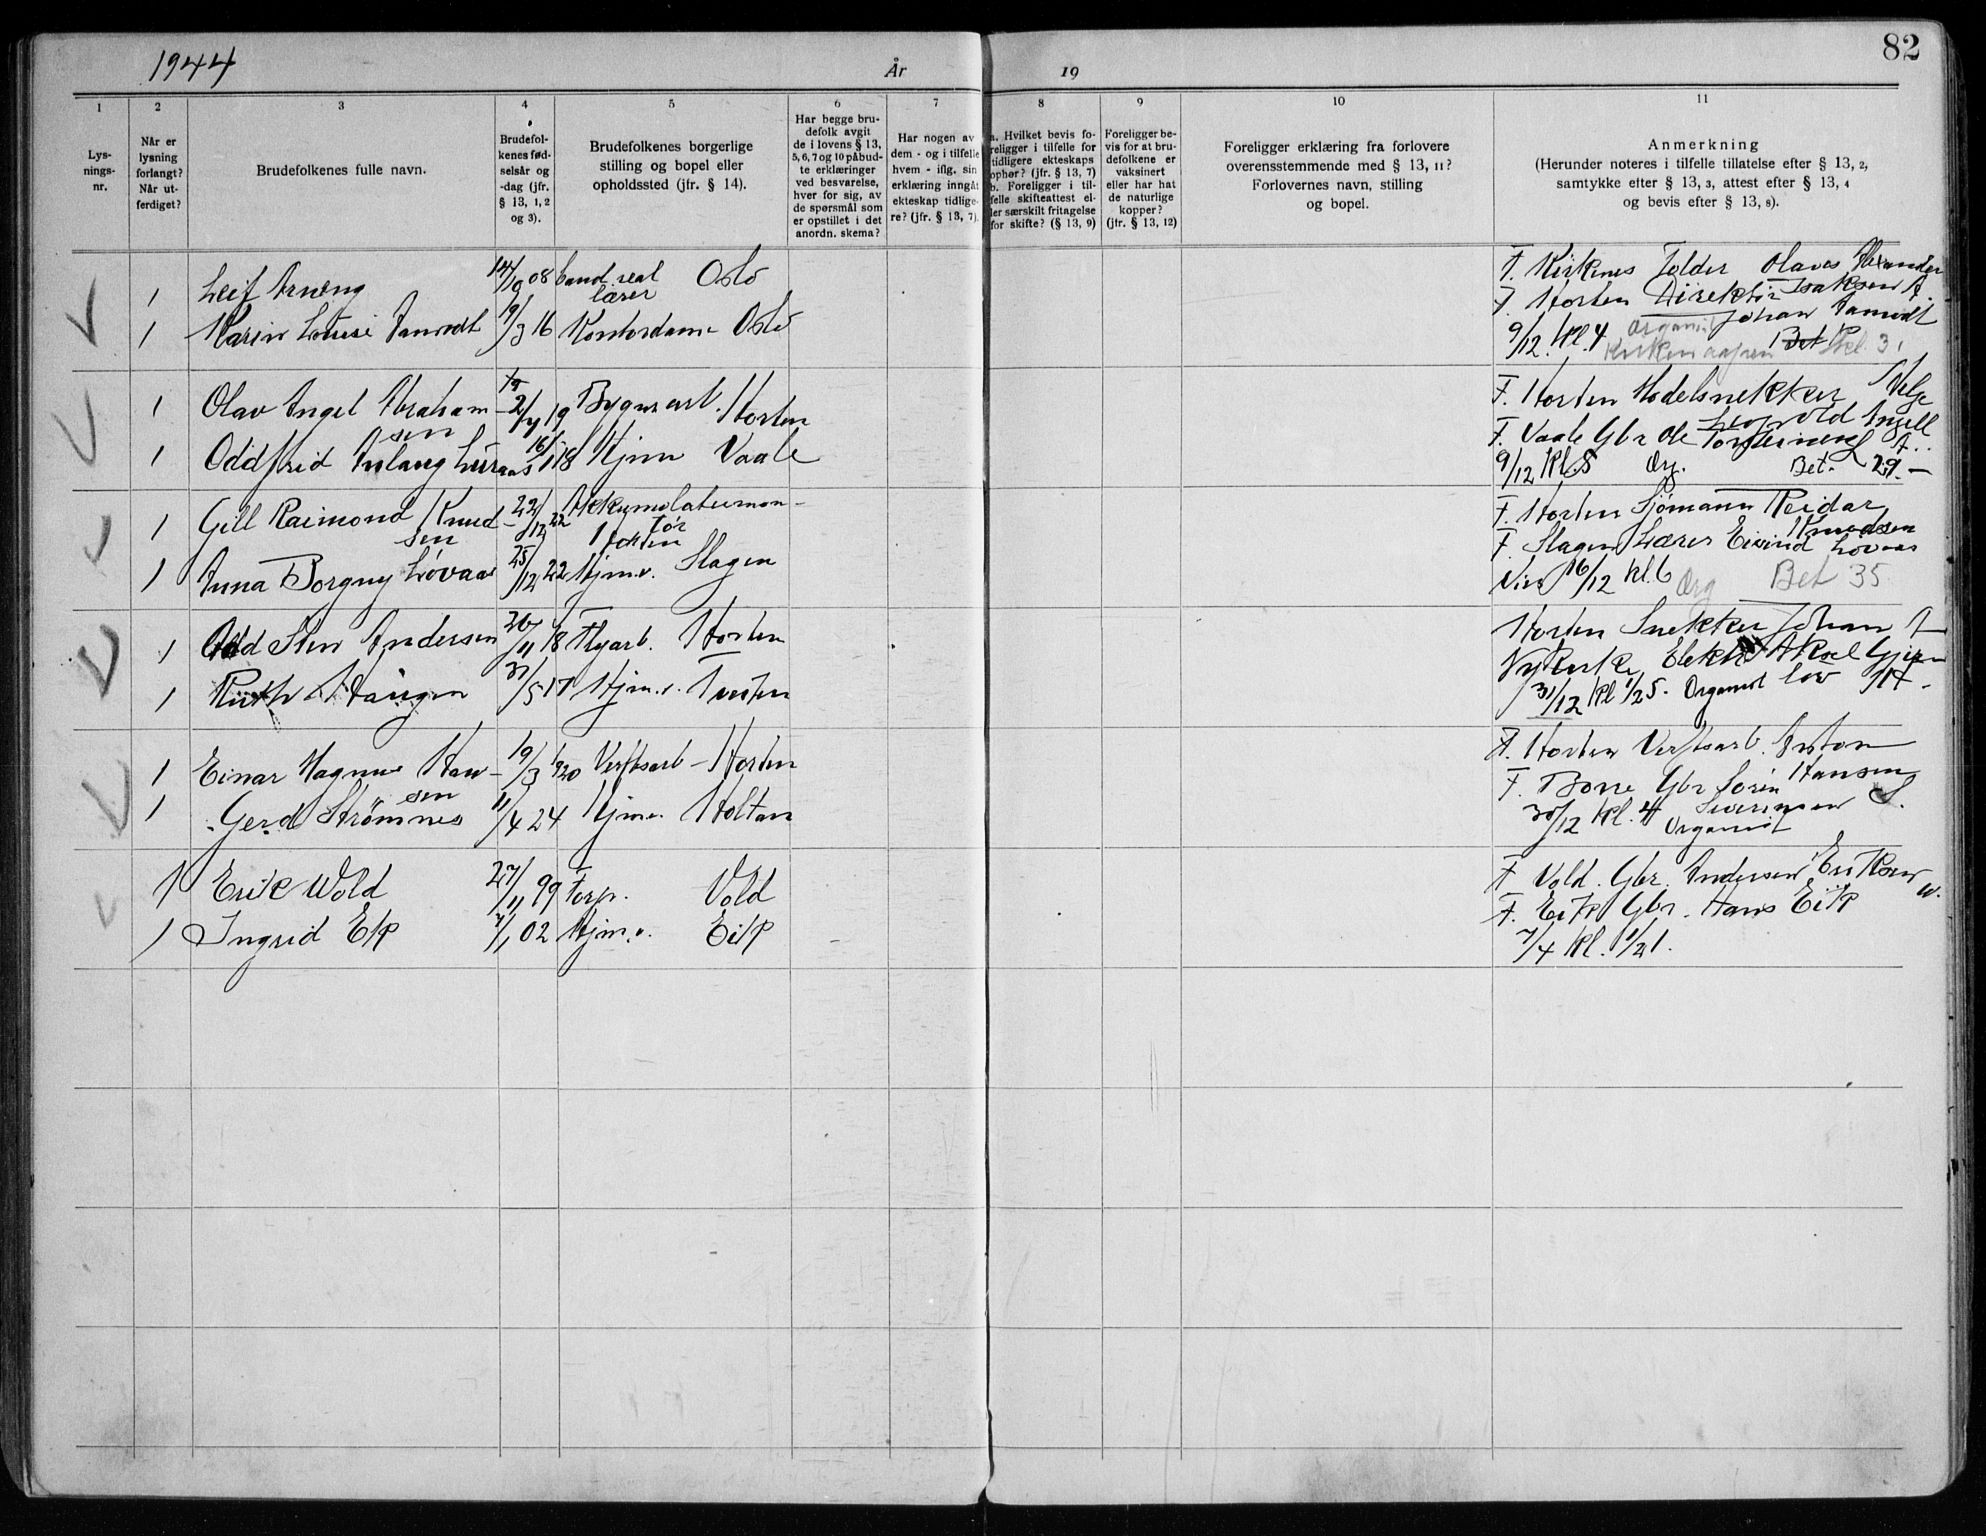 1944
År
19
82
1
2
3
4
5
6
7
8
9
10
11
Lys-
nings-
nr.
Når er
lysning
forlangt?
Når ut-
ferdiget?
Brudefolkenes fulle navn.
Brudefol-
kenes fød-
selsår og
-dag (jfr.
§ 13, 1, 2
og 3).
Brudefolkenes borgerlige
stilling og bopel eller
opholdssted (jfr. § 14).
Har begge bru-
defolk avgit
de i lovens § 13,
5, 6, 7 og 10 påbud-
te erklæringer
ved besvarelse,
hver for sig, av
de spørsmål som
er opstillet i det
anordn. skema?
Har nogen av
dem - og i tilfelle
hvem - iflg. sin
erklæring inngåt
ekteskap tidlige-
re? (jfr. § 13, 7).
a. Hvilket bevis fo-
religger i tilfelle for
tidligere ekteskaps
ophør? (jfr. § 13, 7)
b. Foreligger i til-
felle skifteattest el-
ler særskilt fritagelse
for skifte? (§ 13, 9)
Foreligger be-
vis for at bru-
defolkene er
vaksinert
eller har hat
de naturlige
kopper?
(jfr. § 13, 12)
Foreligger erklæring fra forlovere
overensstemmende med § 13, 11?
Forlovernes navn, stilling
og bopel.
Anmerkning
(Herunder noteres i tilfelle tillatelse efter § 13, 2,
samtykke efter § 13, 3, attest efter § 13, 4
og bevis efter § 13, 8).
1 Leif Arneng 14/9 08 Cand. real Oslo
lærer
F. Kirkenes Tolder Olaves Alexander
Isaksen A.
1 Karin Louise Aamodt 19/3 16 Kontordame Oslo
F. Horten Direktør
Johan Aamodt
9/12. Kl. 4 Organist Bet kl. 3
Kirken
1 Olav Angel Abraham- 2/4 19 Bygn.arb. Horten
sen
F. Horten Modelsnekker Helge
Leopold Angell
1 Oddfrid Aslaug 16/1 18 Hjm Vaale
F. Vaale Gbr Ole A.
9/12 Kl. 5 Org. Bet. 29.-
1 Gill Raimond Knud- 22/12 22 Akkumulatormon-
sen tør
Horten
F. Horten Sjømann Reidar
Knudsen
1 Anna Borgny Løvaas 25/12 22 Hjm.v. Slagen
F. Slagen Lærer Eivind Løvaas
16/12 Kl. 6 Org Bet 35
1 Odd Sten Andersen 20/11 18 Flyarb. Horten
Horten Snekker Johan A
1 Ruth Haugen 31/5 17 Hjm.v.
Nykirke Elektr. Aksel
31/12 Kl 1/2 5. Organist
1 Einar Magnus Han- 19/3 1920 Verftsarb- Horten
sen
F. Horten Verftsarb. Anton
Hansen
1 Gerd Strømnes 11/4 24 Hjm.v. Holtan
F. Borre Gbr Sørin
Severinsen S.
30/12 Kl. 4
Organist
1 Erik Wold 27/11 99 Forp. Vold
F. Vold. Gbr. Andersen Eriksen W.
1 Ingrid Eik 7/1 02 Hjm.v. Eik
F. Eik Gbr. Hans Eik
7/4 Kl. 1/2 1.